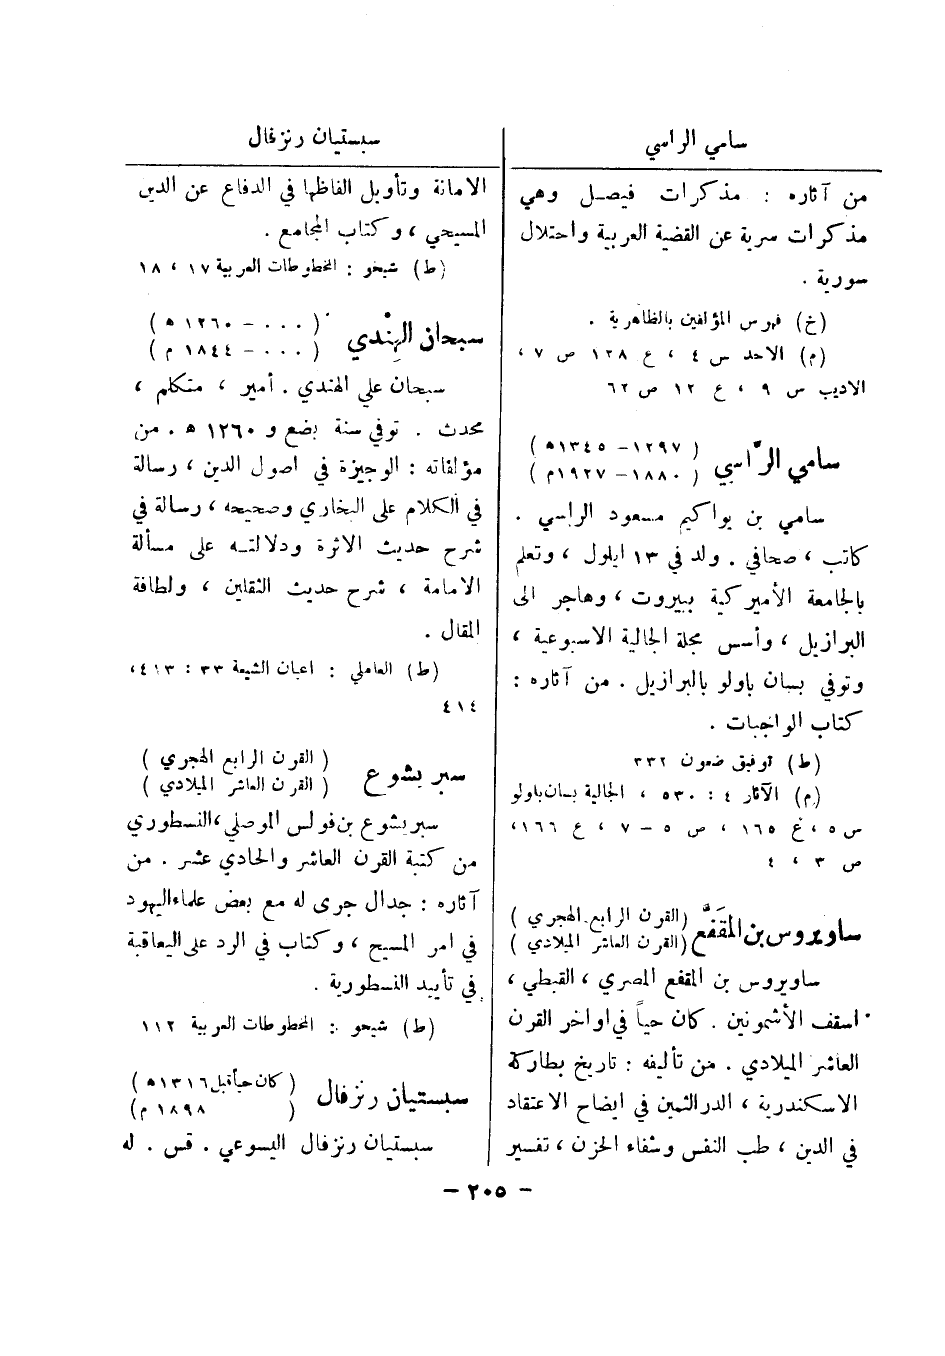 سامي الراسي
من آثاره : مذكرات فيصل وهي
مذكرات سرية عن القضية العربية واحتلال
سورية .
(خ) فهرس المؤلفين بالظاهرية .
(م) الاحد س ٤ ، ع ١٢٨ ص ٧ ،
الاديب س ٩ ، ع ١٢ ص ٦٢
سامي الرّاسي ( ١٢٩٧ – ١٣٤٥ ه )
( ١٨٨٠ – ١٩٢٧م )
سامي بن يواكيم مسعود الراسي .
كاتب ، صحافي . ولد في ١٣ ايلول ، وتعلم
بالجامعة الأميركية ببيروت ، وهاجر الى
البرازيل ، وأسس مجلة الجالية الاسبوعية ،
وتوفي بسان باولو بالبرازيل . من آثاره :
كتاب الواجبات .
(ط) توفيق ضعون ٢٣٢
(م) الآثار ٤ : ٥٣٠ ، الجالية بسان باولو
س ٥ ، ع ١٦٥ ، ص ٥ – ٧ ، ع ١٦٦ ،
ص ٣ ، ٤
ساويروس بن المقفَّع (القرن الرابع الهجري )
(القرن العاشر الميلادي )
ساويروس بن المقفع المصري ، القبطي ،
اسقف الأشمونين . كان حياً في اواخر القرن
العاشر الميلادي . من تأليفه : تاريخ بطاركة
الاسكندرية ، الدر الثمين في ايضاح الاعتقاد
في الدين ، طب النفس وشفاء الحزن ، تفسير
سبستيان رنزفال
الامانة وتأويل الفاظها في الدفاع عن الدين
المسيحي ، وكتاب المجامع .
(ط) شيخو : المخطوطات العربية ١٧ ، ١٨
سبحان الهِنْدي ( ٠٠٠ – ١٢٦٠ ه )
( ٠٠٠ – ١٨٤٤ م )
سبحان علي الهندي . أمير ، متكلم ،
محدث . توفي سنة بضع و ١٢٦٠ ه . من
مؤلفاته : الوجيزة في اصول الدين ، رسالة
في الكلام على البخاري وصحيحه ، رسالة في
شرح حديث الاثرة ودلالته على مسألة
الامامة ، شرح حديث الثقلين ، ولطافة
المقال .
(ط) العاملي : اعيان الشيعة ٣٣ : ٤١٣ ،
٤١٤
سبر يشوع ( القرن الرابع الهجري )
( القرن العاشر الميلادي )
سبر يشوع بن فولس الموصلي ، النسطوري
من كتبة القرن العاشر والحادي عشر . من
آثاره : جدال جرى له مع بعض علماء اليهود
في امر المسيح ، وكتاب في الرد على اليعاقبة
في تأييد النسطورية .
(ط) شيخو : المخطوطات العربية ١١٢
سبستيان رنزفال ( كان حياً قبل ١٣١٦ ه )
( ١٨٩٨ م )
سبستيان رنزفال اليسوعي . قس . له
– ٢٠٥ –